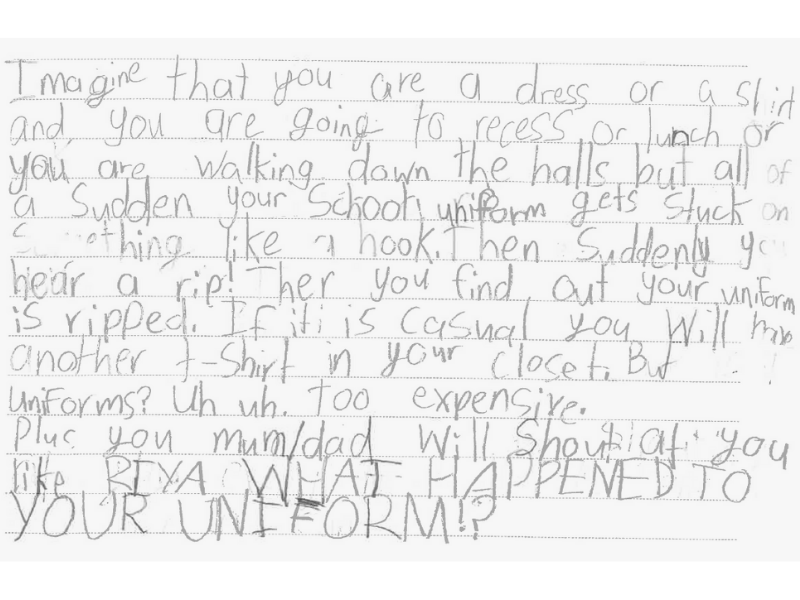 Imagine that you are a dress or a shirt
and you are going to recess or lunch or
you are walking down the halls but all of
a Sudden your School uniform gets stuck on
Something like a hook. Then Suddenly you
hear a rip! Then you find out your uniform
is ripped. If it is casual you Will have
another t-Shirt in your closet. But
Uniforms? Uh uh. too expensive.
Plus you mum/dad Will Shout at you
like REYA WHAT HAPPENED TO
YOUR UNIFORM!?